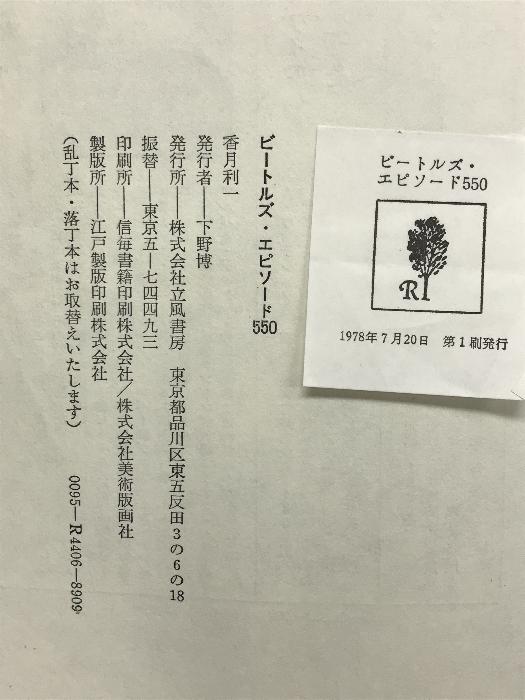 ビートルズ・
エピソード550
R
1978年7月20日　第1刷発行
ビートルズ・エピソード550
香月利一
発行者──下野博
発行所──株式会社立風書房　東京都品川区東五反田3の6の18
振替──東京五─七四四九三
印刷所──信毎書籍印刷株式会社/株式会社美術版画社
製版所──江戸製版印刷株式会社
(乱丁本・落丁本はお取替えいたします)　0095─R4406─8909